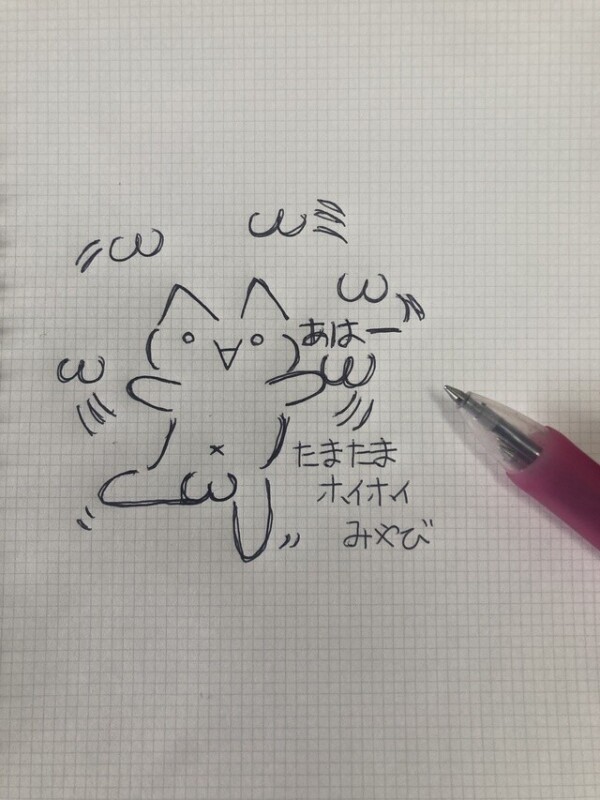 ω
ω
ω
あはー
ω
ω
たまたま
ω
ホイホイ
みやび